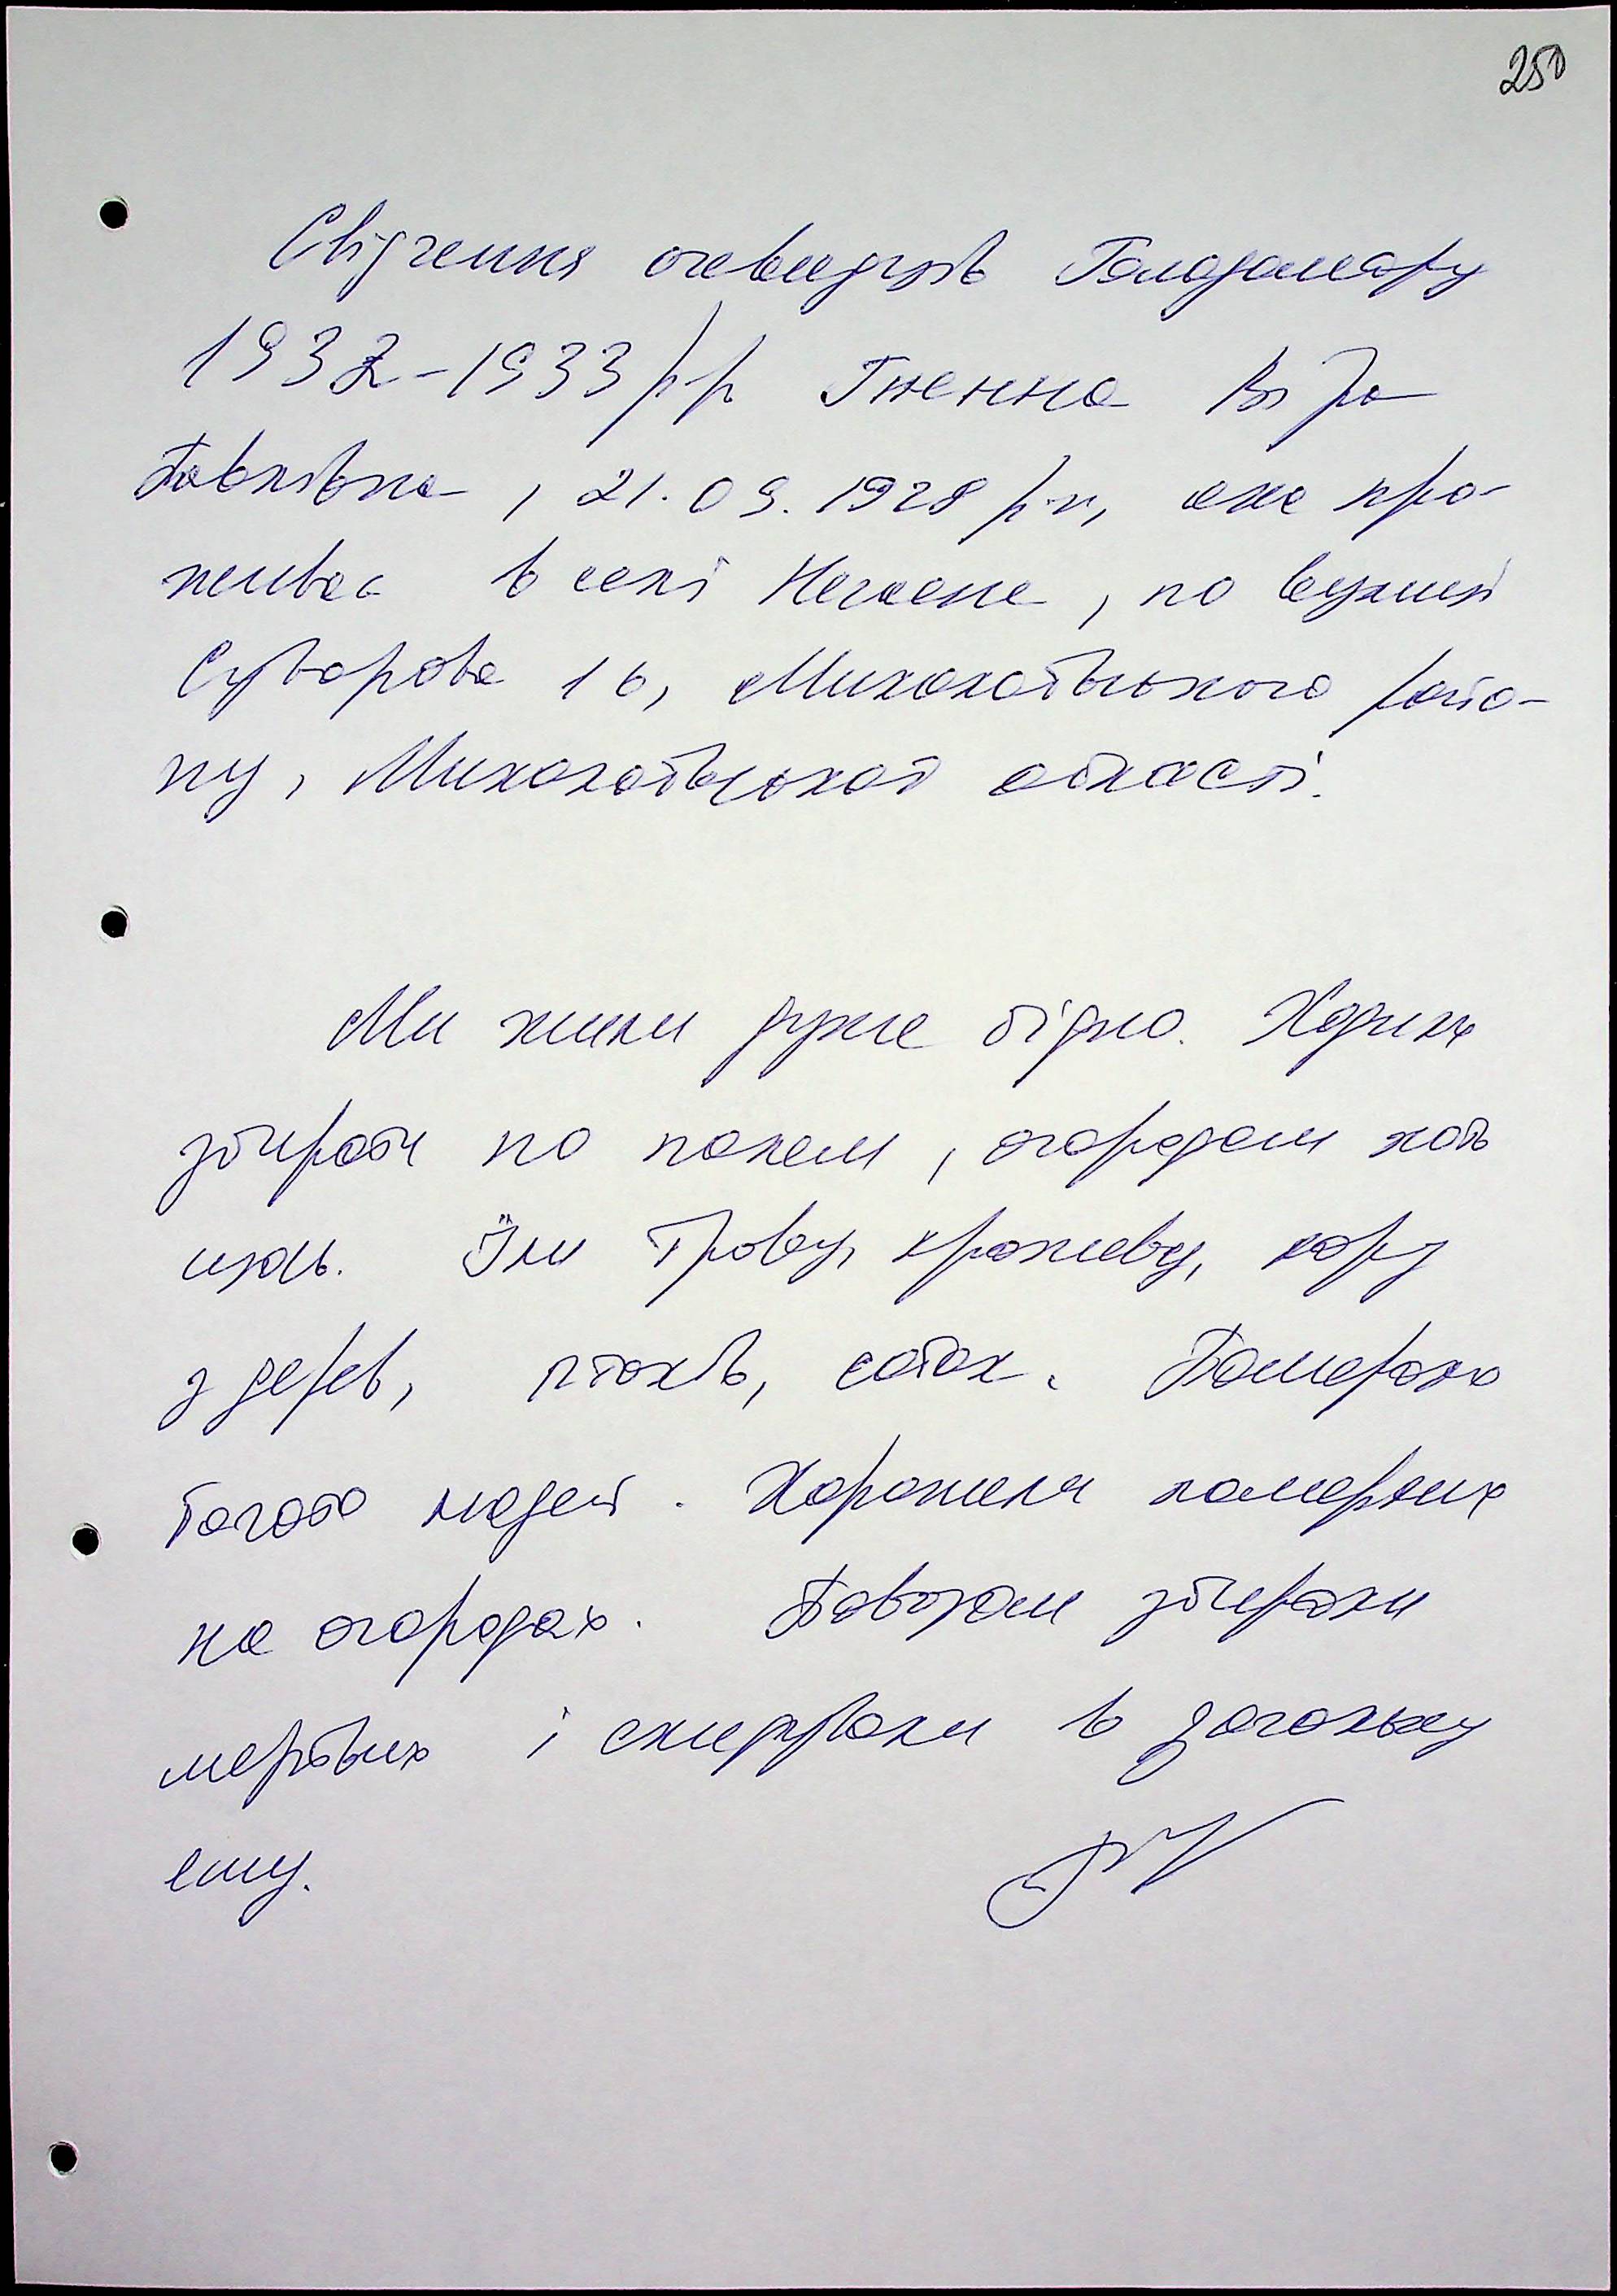 250
Свідчення очевидців Голодомору
1932-1933 р-р Гненна Віра
Павлівна, 21.09.1928 р.н, яка про-
живає в селі Нечаяне, по вулиці
Суворова 16, Миколаївського райо-
ну, Миколаївської області.
Ми жили дуже бідно. Ходили
збирати по полям, огородам хоть
щось. Їли траву, крапиву, кору
з дерев, птахів, собак. Помирало
багато людей. Хоронили померлих
на огородах. Подводами збирали
мертвих і скидували в загальну
яму.